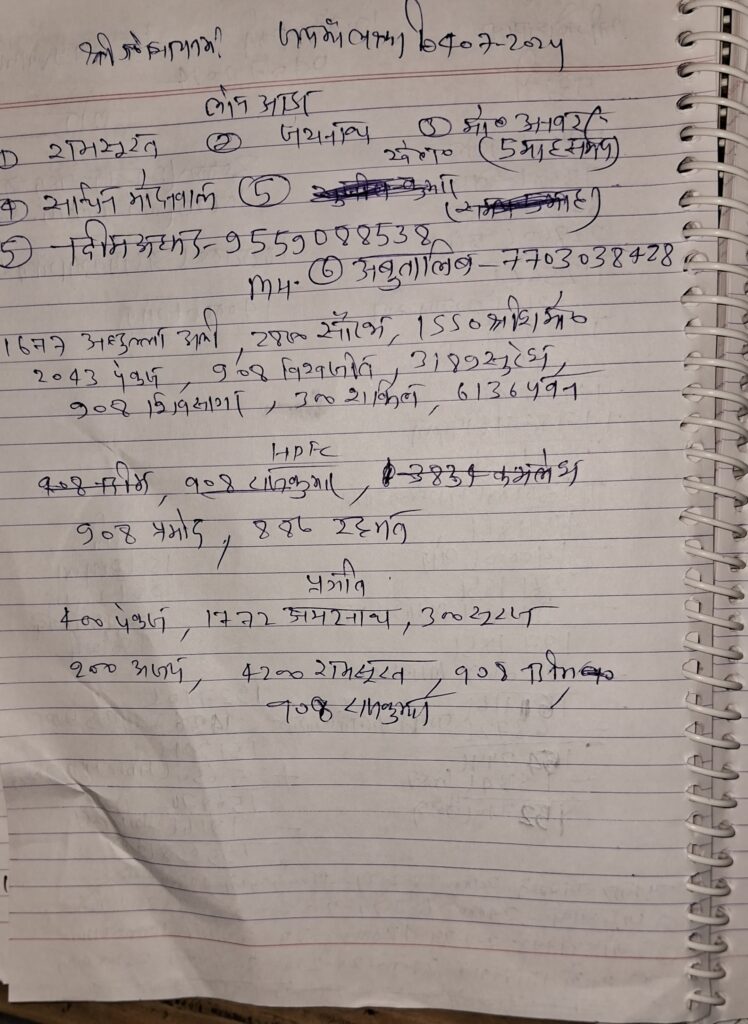 श्री गणेशाय नमः जय माँ लक्ष्मी 04-07-2024
लोन आडर
① रामसूरत ② जयनाथ ③ मो० अनवर
(5 माह समय)
④ सचिन मोदनवाल ⑤
⑤ नदीम अहमद - 9559088538
⑥ अबुतालिब - 7703038428
1677 अब्दुल्ला अली, 2800 सौरभ, 1550
2043 पंकज, 908 विश्वजीत, 3189 सुरेश,
908 शिवसागर, 300 शकिल, 6136 पवन
HDFC
908 नदीम, 908 राजकुमार, 3834 कमलेश
908 प्रमोद, 886 रहमत
प्रगति
400 पंकज, 1772 अमरनाथ, 300 सूरज
200 अजय, 4200 रामसूरत, 908 नदीम
908 राजकुमार